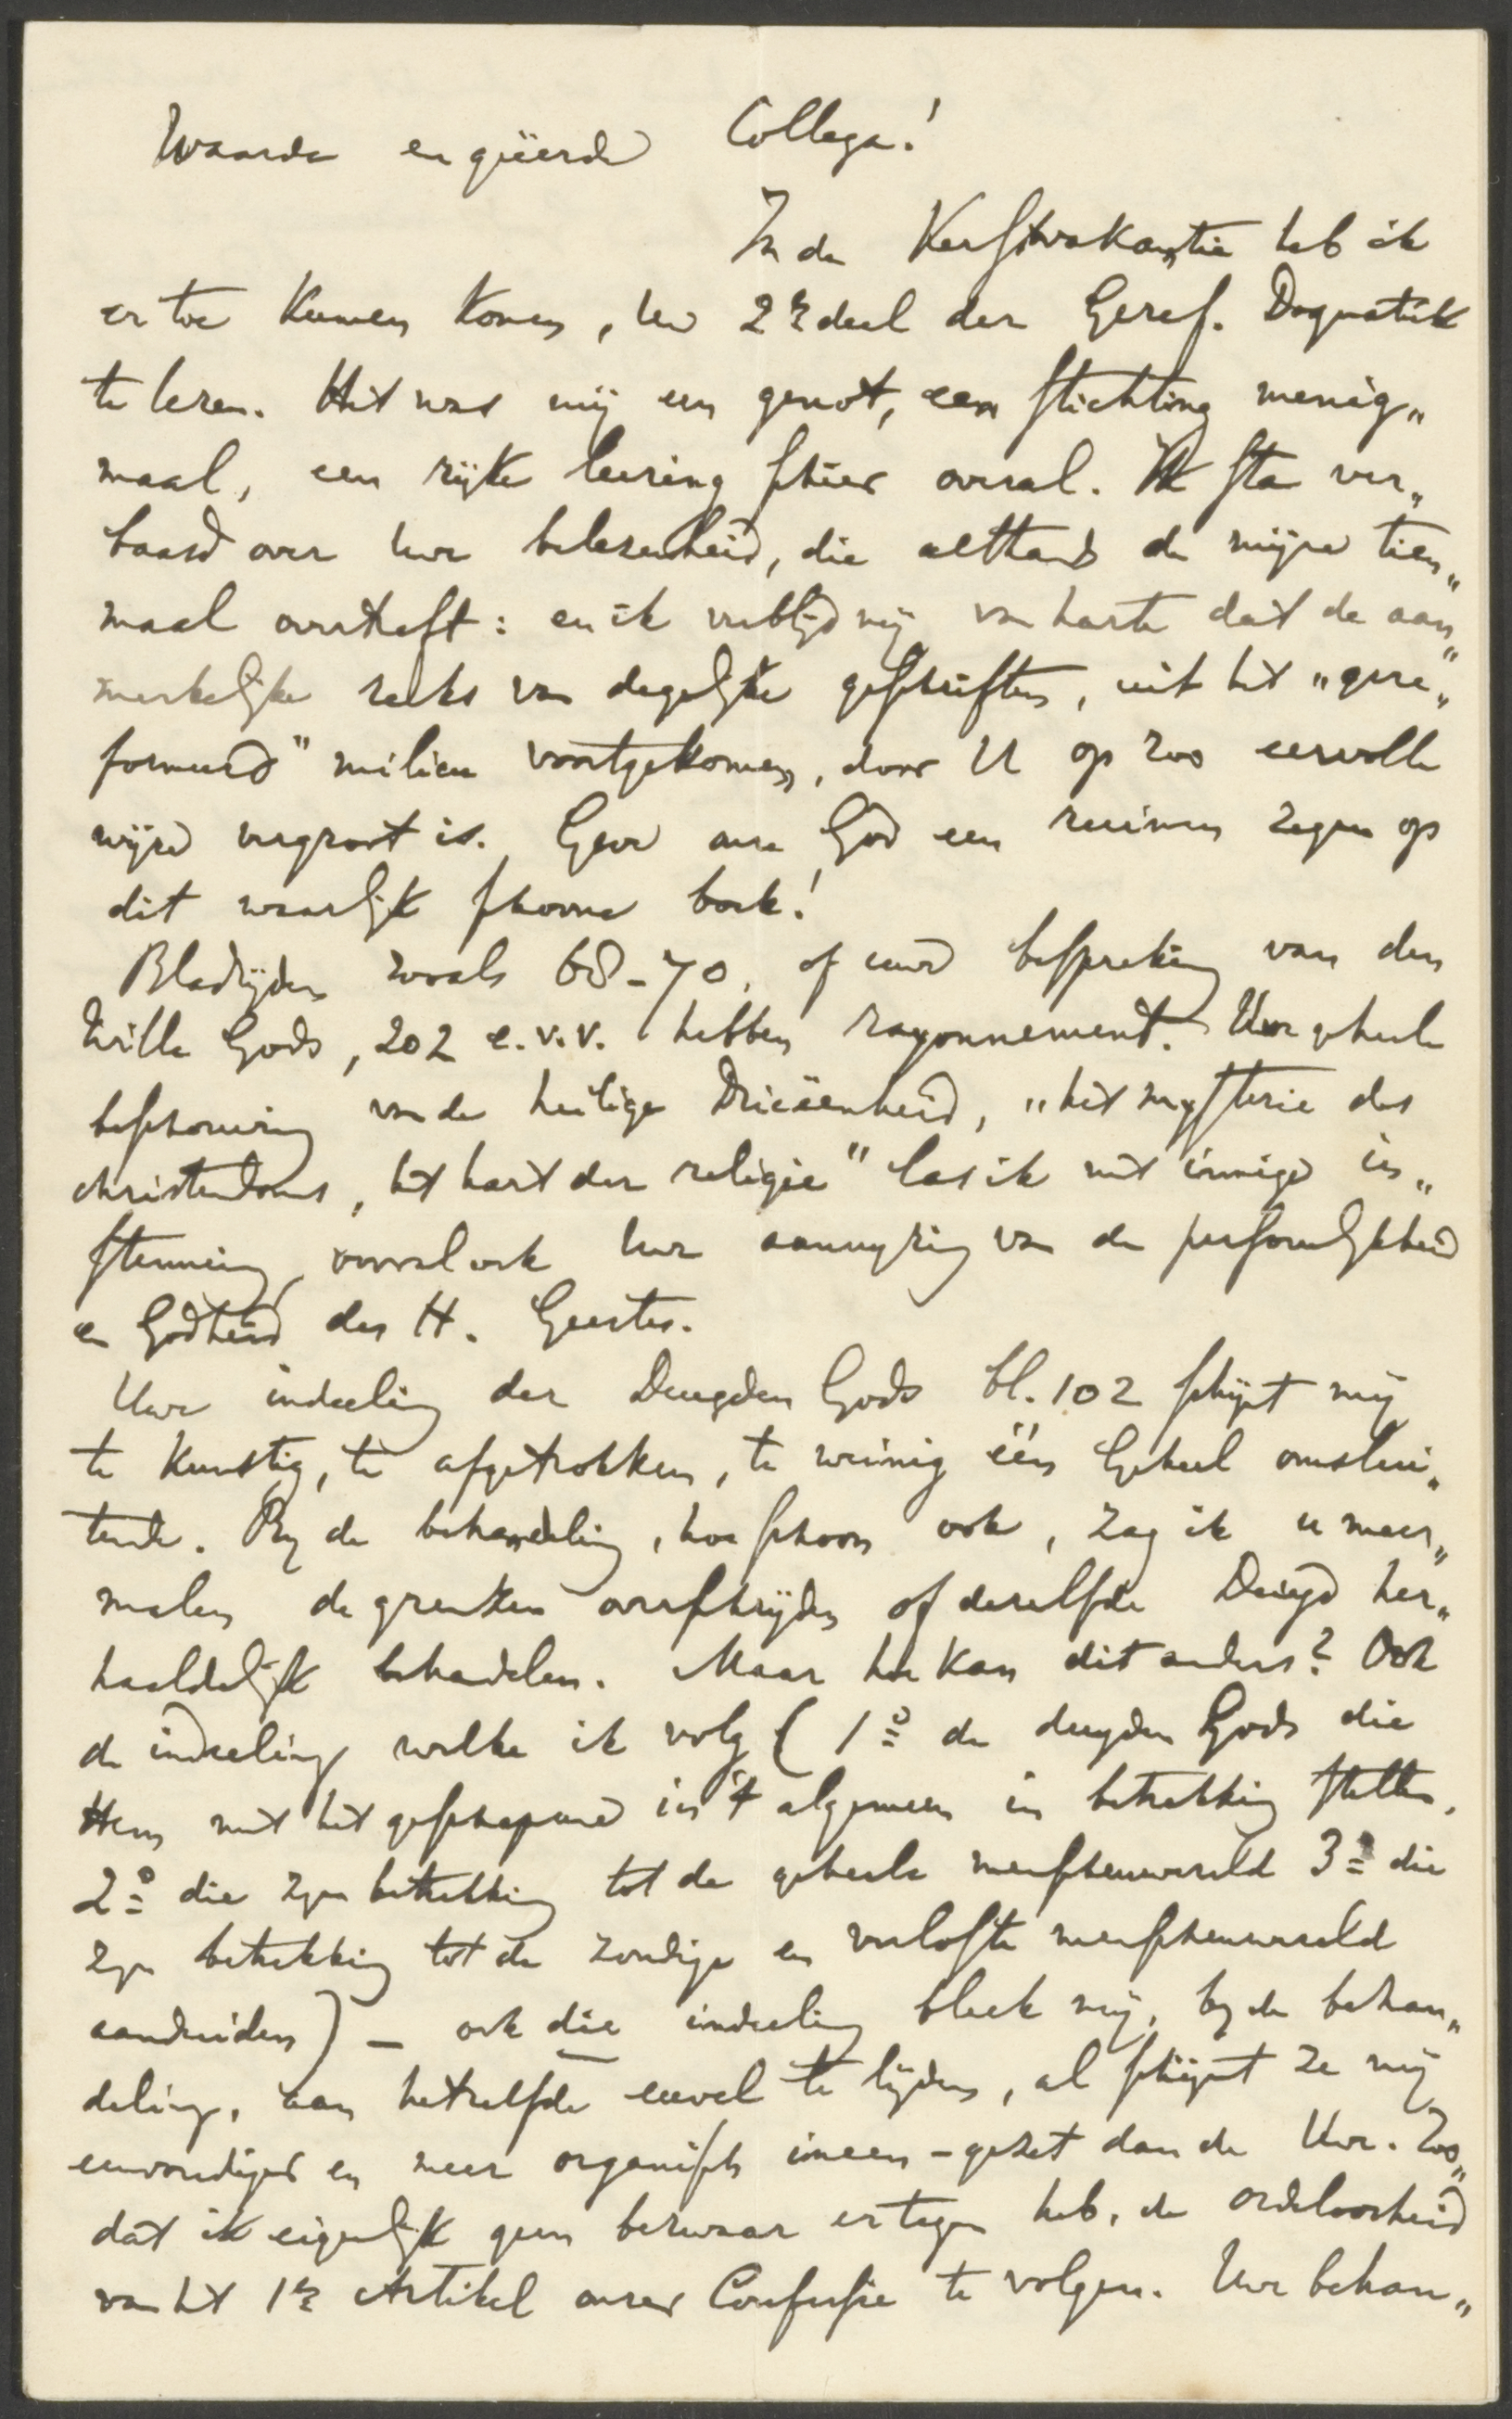 Waarde en geëerde Collega!
In de Kerstvakantie heb ik
er toe kunnen komen, Uw 2e deel der Geref. Dogmatiek
te lezen. Het was mij een genot, een stichting menig„
maal, een rijke leering schier overal. Ik sta ver„
baasd over Uwe belezenheid, die althans de mijne tien„
maal overtreft: en ik verblijd mij van harte dat de aan„
merkelijke reeks van degelijke geschriften, uit het „gere„
formeerd" milieu voortgekomen, door U op zoo eervolle
wijze vergroot is. Geve onze God een ruimen zegen op
dit waarlijk schoone boek!
Bladzijden zooals 68-70, of uwe bespreking van den
Wille Gods, 202 e.v.v. hebben rayonnement. Uwe geheele
beschouwing van de heilige Drieëenheid, „het mysterie des
christendoms, het hart der religie" las ik met innige in„
stemming, vooral ook Uwe aanwijzing van de persoonlijkheid
en Godheid des H. Geestes.
Uwe indeeling der Deugden Gods bl. 102 schijnt mij
te kunstig, te afgetrokken, te weinig één Geheel omslui„
tende. Bij de behandeling, hoe schoon ook, zag ik u meer„
malen de grenzen overschrijden of dezelfde Deugd her„
haaldelijk behandelen. Maar hoe kan dit anders? Ook
de indeeling welke ik volg (1o de deugden Gods die
Hem met het geschapene in 't algemeen in betrekking stellen,
2o die zijn betrekking tot de geheele menschenwereld 3o die
zijn betrekking tot de zondige en verloste menschenwereld
aanduiden) – ook die indeeling bleek mij, bij de behan„
deling, aan hetzelfde euvel te lijden, al schijnt ze mij
eenvoudiger en meer organisch ineen-gezet dan de Uwe. Zoo„
dat ik eigenlijk geen bezwaar ertegen heb, de ordeloosheid
van het 1e Artikel onzer Confessie te volgen. Uwe behan„